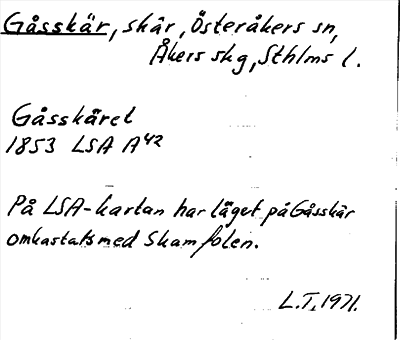 Gåsskär, skär, Österåkers sn,
Åkers skg, Sthlms l.
Gåsskäret
1853 LSA A42
På LSA-kartan har läget på Gåsskär
omkastats med Skamfolen.
L.T. 1971.